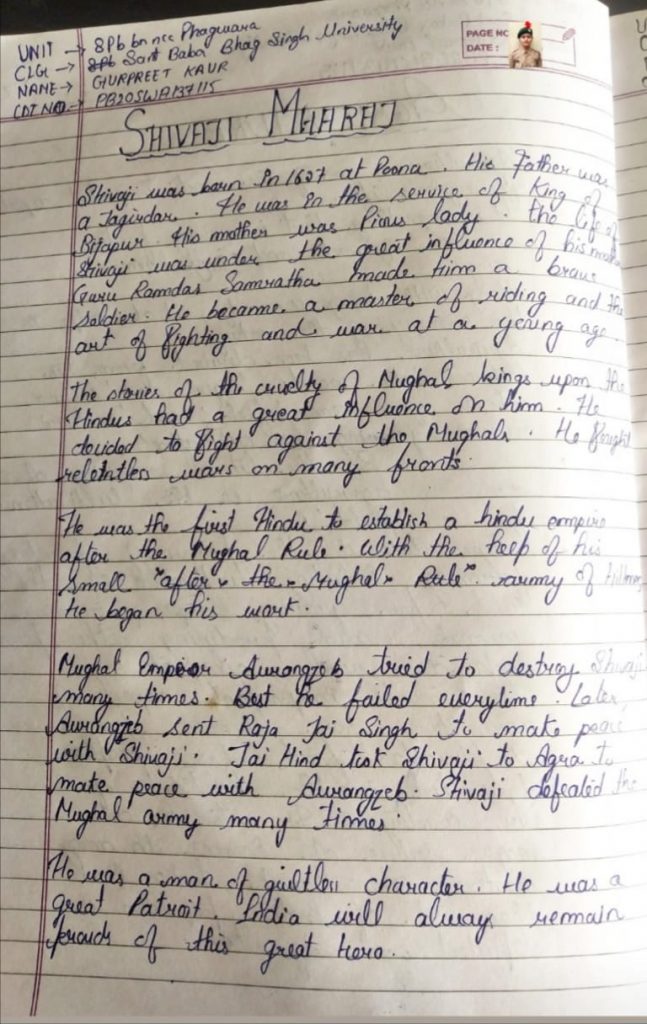 UNIT → 8Pb bn ncc Phagwara
CLG → Sant Baba Bhag Singh University
NAME → GURPREET KAUR
CDT NO. → PB20SWA137115
PAGE NO
DATE :
SHIVAJI MHARAJ
Shivaji was born in 1627 at Poona. His Father was
a Jagirdar. He was in the service of King of
Bijapur. His mother was Pious lady. the life of
Shivaji was under the great influence of his
Guru Ramdas Samratha made him a brave
soldier. He became a master of riding and the
art of fighting and war at a yeung age.
The stories of the cruelty of Mughal kings upon the
Hindus had a great influence on him. He
decided to fight against the Mughals. He fought
relentless wars on many fronts.
He was the first Hindu to establish a hindu empire
after the Mughal Rule. With the help of his
small "after the Mughal Rule" army of
he began his work.
Mughal Emperor Aurangzeb tried to destroy Shivaji
many times. But he failed everytime. Later,
Aurangzeb sent Raja Jai Singh to make peace
with Shivaji. Jai Hind took Shivaji to Agra to
make peace with Aurangzeb. Shivaji defealed the
Mughal army many times.
He was a man of guiltless character. He was a
great Patroit. India will always remain
proud of this great hero.